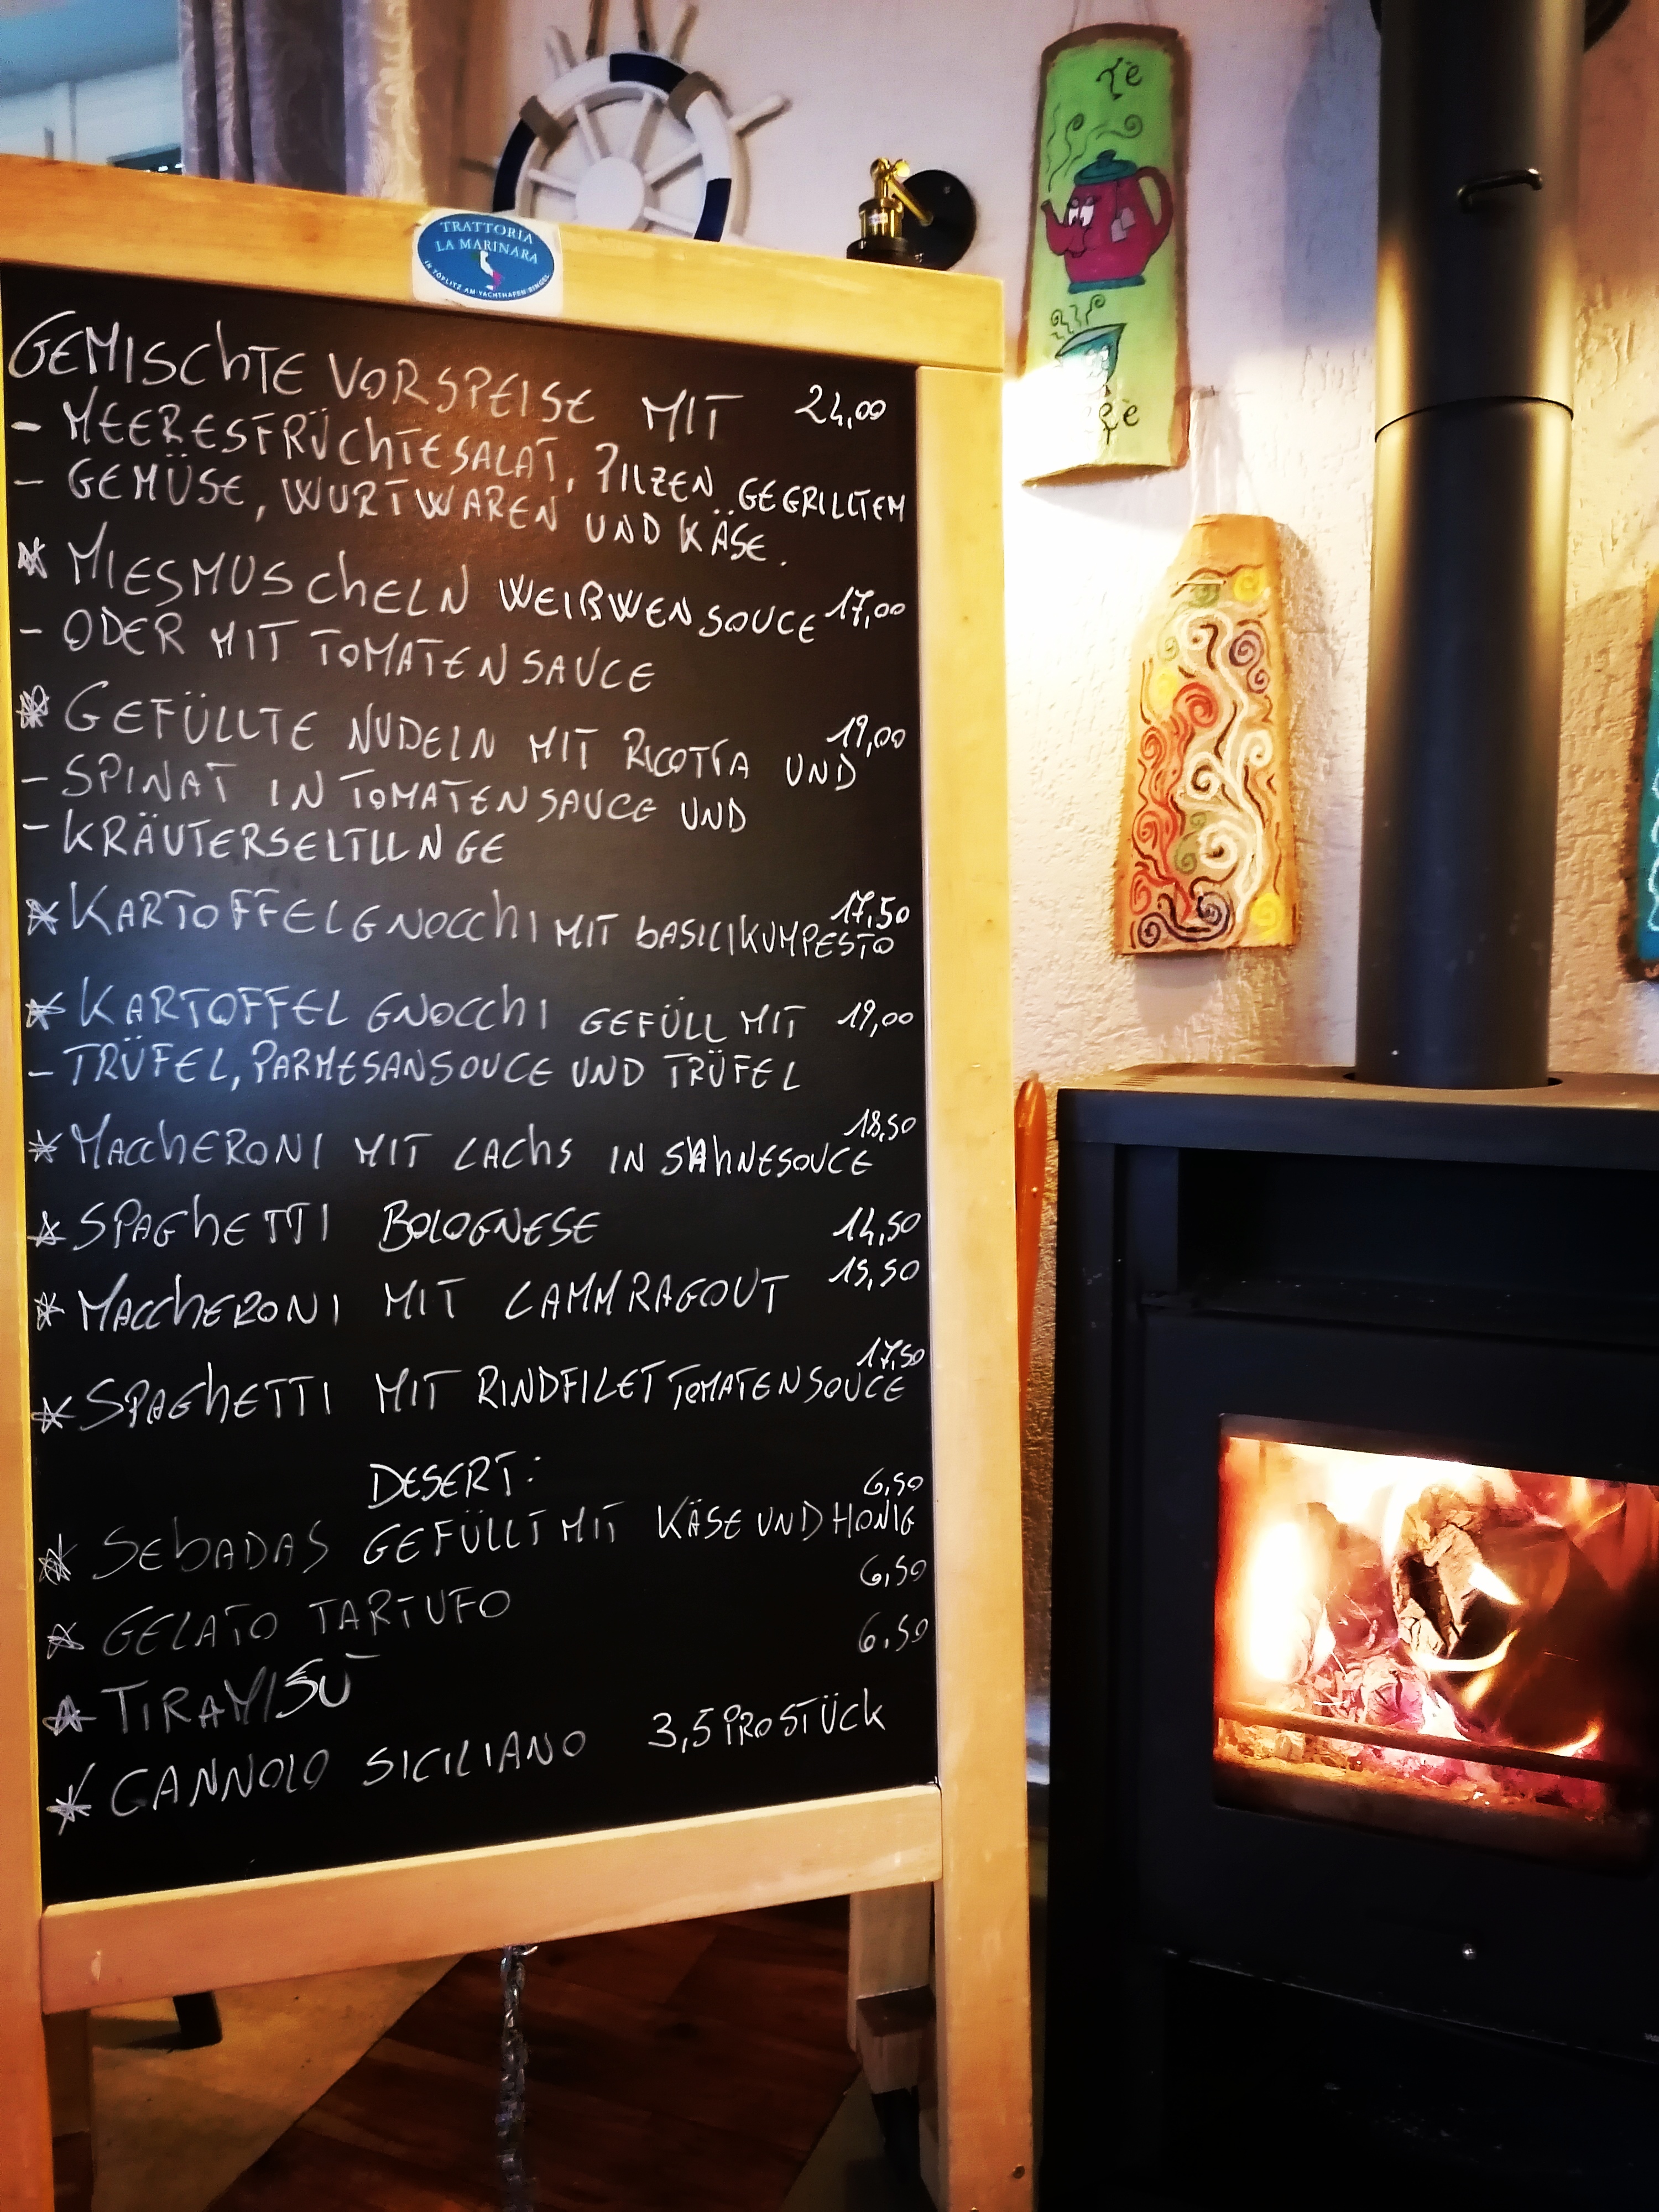 TRATTORIA
LA MARINARA
IN TÖPLITZ AM YACHTHAFEN RINGEL
Tè
GEMISChTE VORSPEISE MIT 24,00
- MEERESFRÜChTESALAT, PILZEN GEGRILLTEM
- GEMÜSE, WURTWAREN UND KÄSE.
* MIESMUSChELN WEIßWEN SOUCE 17,00
- ODER MIT TOMATENSAUCE
* GEFÜLLTE NUDELN MIT RICOTTA UND 19,00
- SPINAT IN TOMATENSAUCE UND
- KRÄUTERSELTLLNGE
* KARTOFFELGNOCChI MIT bASILIKUMPESTO 17,50
* KARTOFFEL GNOCChI GEFÜLL MIT 19,00
- TRÜFEL, PARMESANSOUCE UND TRÜFEL
* MACChERONI MIT LAChS IN SAhNESOUCE 18,50
* SPAGhETTI BOLOGNESE 14,50
* MACChERONI MIT LAMMRAGOUT 15,50
* SPAGhETTI MIT RINDFILET TOMATENSOUCE 17,50
DESERT:
* SEbADAS GEFÜLLT MIT KÄSE UND HONIG 6,50
* GELATO TARTUFO 6,50
* TIRAMISÙ 6.50
* CANNOLO SICILIANO 3,5 PRO STÜCK